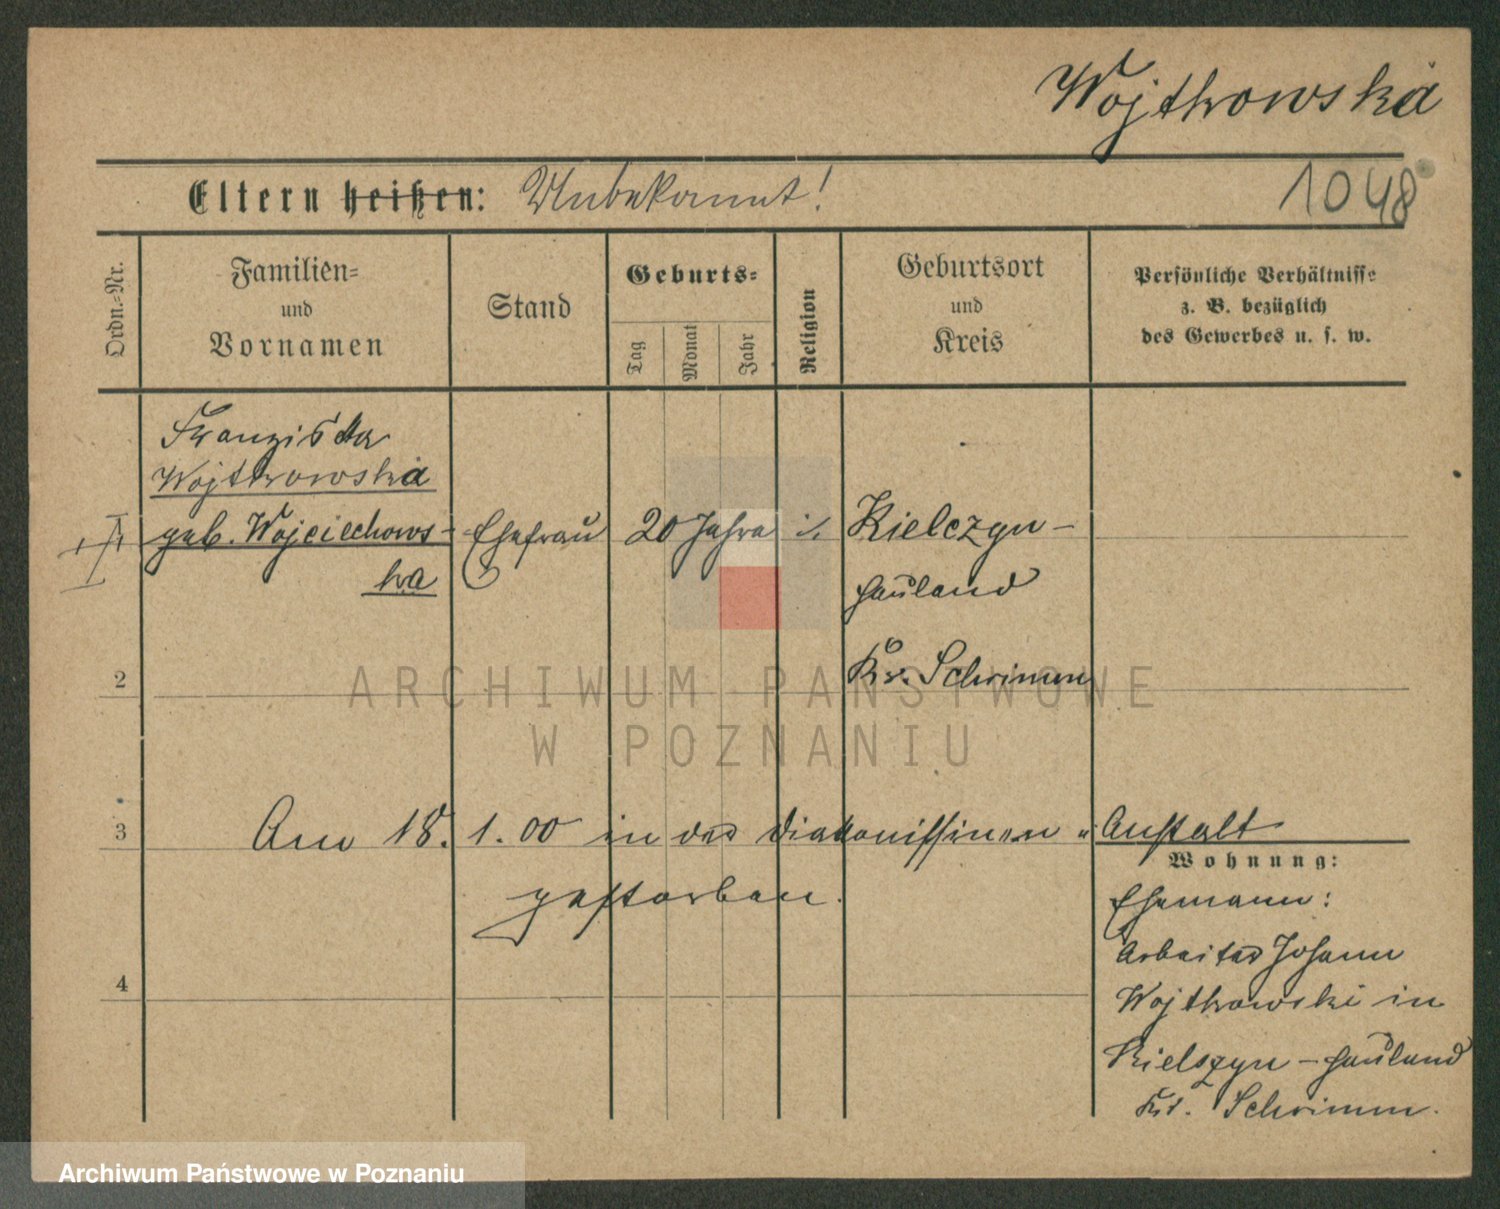 Wojtkowska
Eltern heißen: Unbekannt!
1048
Ordn.-Nr.
Familien-
und
Vornamen
Stand
Geburts-
Tag
Monat
Jahr
Religion
Geburtsort
und
Kreis
Persönliche Verhältnisse
z. B. bezüglich
des Gewerbes u. s. w.
Franziska
Wojtkowska
geb. Wojciechows-
ka
Ehefrau
20 Jahre
Kielczyn-
hauland
Kr. Schrimm
2
3
Am 18. 1. 00 in der Diakonissinnen Anstalt
gestorben.
Wohnung:
Ehemann:
Arbeiter Johann
Wojtkowski in
Kielszyn-hauland
Kr. Schrimm.
4
ARCHIWUM PAŃSTWOWE
W POZNANIU
Archiwum Państwowe w Poznaniu